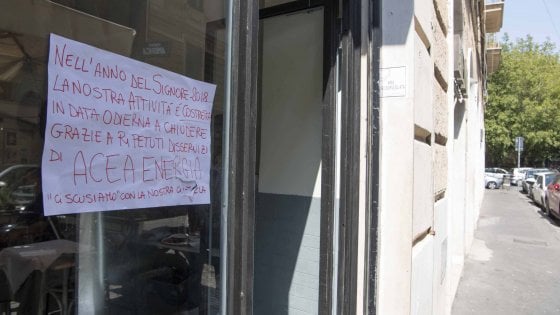 NELL'ANNO DEL SIGNORE 2018
LA NOSTRA ATTIVITÀ É COSTRETTA
IN DATA ODIERNA A CHIUDERE
GRAZIE A RIPETUTI DISSERVIZI
DI ACEA ENERGIA
"CI SCUSIAMO" CON LA NOSTRA CLIENTELA